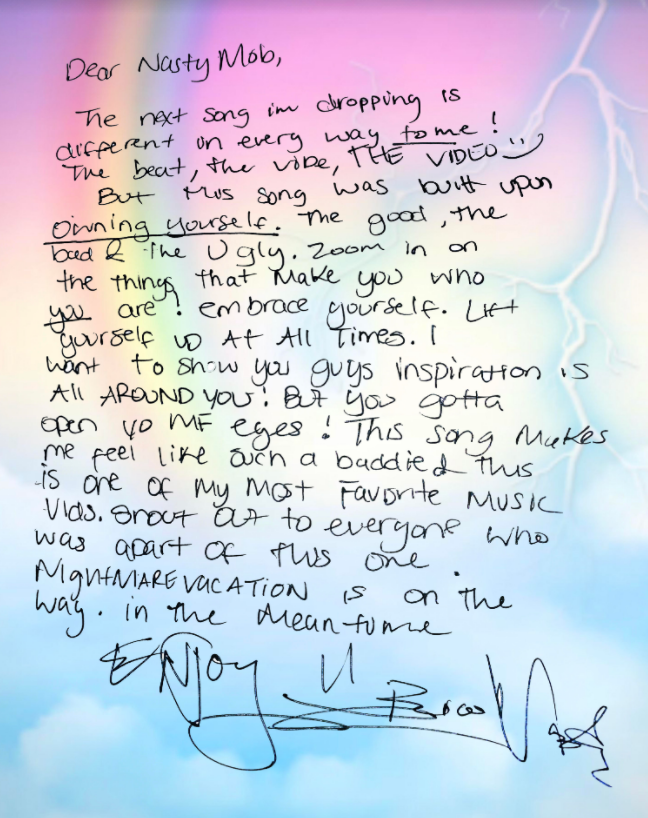 Dear Nasty Mob,
The next song im dropping is
different in every way to me!
The beat, the vibe, THE VIDEO
But this song was built upon
owning yourself. The good, the
bad & The Ugly. Zoom in on
the things that make you who
you are! embrace yourself. Lift
yourself up At All Times. I
want to show you guys inspiration is
All AROUND YOU! But you gotta
open yo MF eyes! This song Makes
me feel like such a baddie & this
is one of my Most Favorite MUSIC
Vids. Shout out to everyone who
was apart of this one.
NIGHTMARE VACATION is on the
way. in the Mean-time
ENJOY